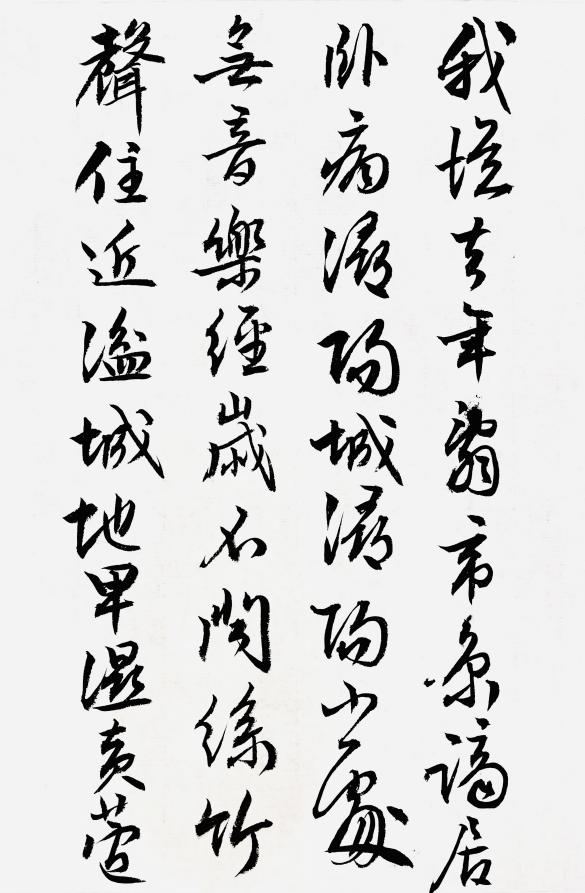 我從去年辭帝京謫居
臥病潯陽城潯陽小處
無音樂經歲不聞絲竹
聲住近湓城地卑濕黃蘆